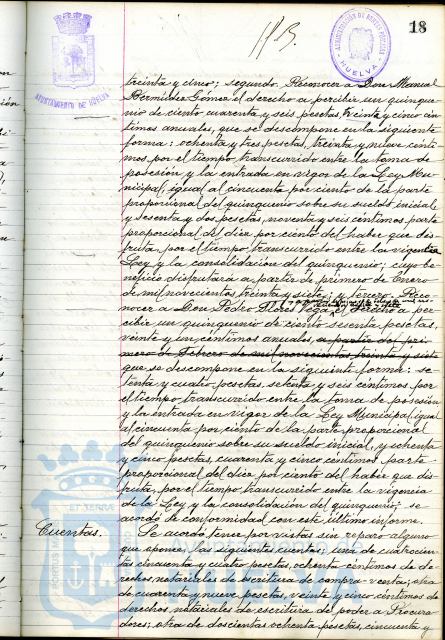 18
AYUNTAMIENTO DE HUELVA
HUELVA
treinta y cinco; segundo. Reconocer a Don Manuel
Bermúdez Gómez el derecho a percibir un quinque-
nio de ciento cuarenta y seis pesetas, treinta y cinco cén-
timos anuales, que se descompone en la siguiente
forma: ochenta y tres pesetas, treinta y nueve cénti-
mos por el tiempo transcurrido entre la toma de
posesión y la entrada en vigor de la Ley Mu-
nicipal, igual al cincuenta por ciento de la parte
proporcional del quinquenio sobre su sueldo inicial,
y sesenta y dos pesetas, noventa y seis céntimos, parte
proporcional del diez por ciento del haber que dis-
fruta, por el tiempo transcurrido entre la vigencia
Ley y la consolidación del quinquenio; cuyo be-
neficio disfrutará a partir de primero de Enero
de mil novecientos treinta y siete; y tercero. Reco-
nocer a Don Pedro Flores Vega, el derecho a per-
cibir un quinquenio de ciento sesenta pesetas,
veinte y un céntimos anuales, a partir del pri-
mero de Febrero de mil novecientos treinta y siete
que se descompone en la siguiente forma: se-
tenta y cuatro pesetas, setenta y seis céntimos por
el tiempo transcurrido entre la toma de posesión
y la entrada en vigor de la Ley Municipal, igual
al cincuenta por ciento de la parte proporcional
del quinquenio sobre su sueldo inicial, y ochenta
y cinco pesetas, cuarenta y cinco céntimos parte
proporcional del diez por ciento del haber que dis-
fruta, por el tiempo transcurrido entre la vigencia
de la Ley y la consolidación del quinquenio; se
acordó de conformidad con este último informe.
Cuentas. Se acordó tener por vistas sin reparo alguno
que oponer, las siguientes cuentas; una de cuatrocien-
tas cincuenta y cuatro pesetas, ochenta céntimos de de-
rechos notariales de escritura de compra-venta; otra
de cuarenta y nueve pesetas, veinte y cinco céntimos de
derechos notariales de escritura de poder a Procura-
dores; otra de doscientas ochenta pesetas, cincuenta y